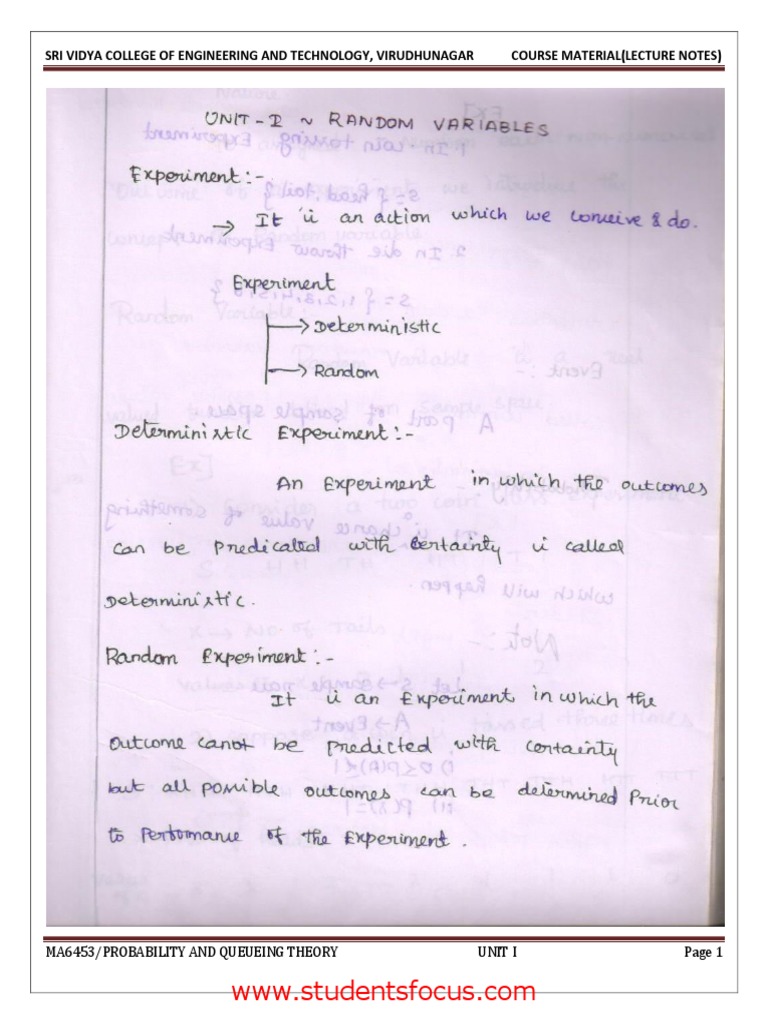 SRI VIDYA COLLEGE OF ENGINEERING AND TECHNOLOGY, VIRUDHUNAGAR COURSE MATERIAL(LECTURE NOTES)
UNIT-I ~ RANDOM VARIABLES
Experiment:-
→ It is an action which we conceive & do.
Experiment
→ Deterministic
→ Random
Deterministic Experiment:-
An Experiment in which the outcomes
can be Predicated with certainty is called
Deterministic.
Random Experiment:-
It is an Experiment in which the
outcome canot be predicted with certainty
but all possible outcomes can be determined Prior
to Performance of the Experiment.
MA6453/PROBABILITY AND QUEUEING THEORY UNIT I Page 1
www.studentsfocus.com